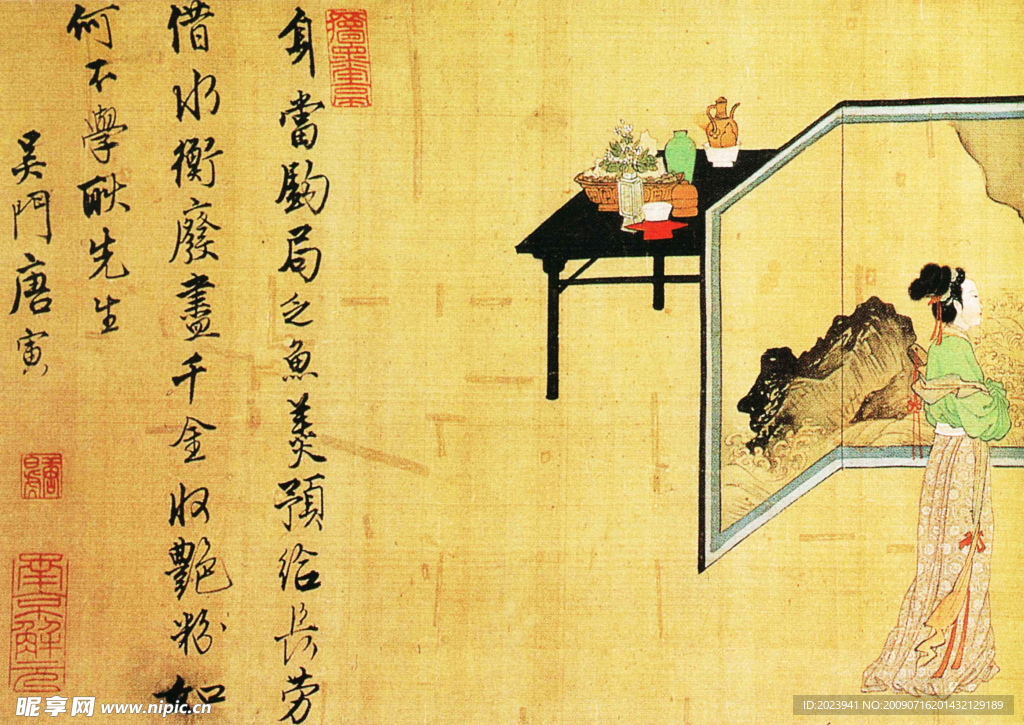 身當勍局乏魚羹預給長勞
借水衡廢盡千金收艷粉如
何不學耿先生
吳門唐寅
南京解元
昵享网 www.nipic.cn
ID:2023941 NO:20090716201432129189